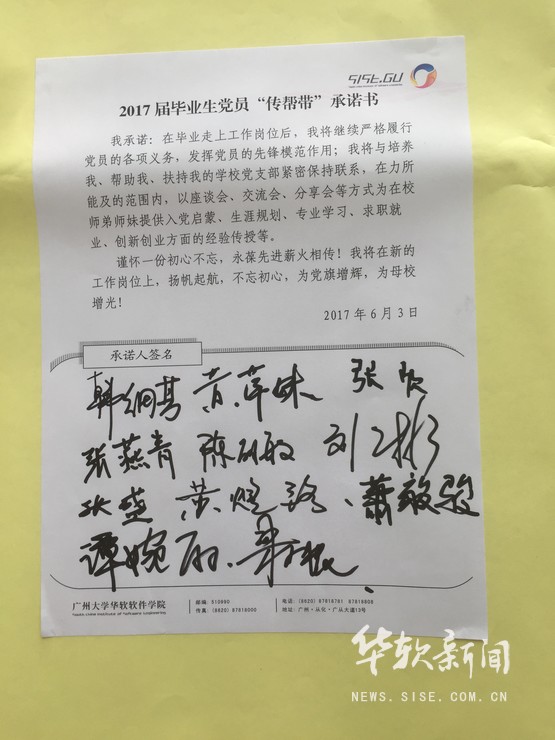 SISE.GU
2017 届毕业生党员“传帮带”承诺书
我承诺：在毕业走上工作岗位后，我将继续严格履行
党员的各项义务，发挥党员的先锋模范作用；我将与培养
我、帮助我、扶持我的学校党支部紧密保持联系，在力所
能及的范围内，以座谈会、交流会、分享会等方式为在校
师弟师妹提供入党启蒙、生涯规划、专业学习、求职就
业、创新创业方面的经验传授等。
谨怀一份初心不忘，永葆先进薪火相传！我将在新的
工作岗位上，扬帆起航，不忘初心，为党旗增辉，为母校
增光！
2017 年 6 月 3 日
承诺人签名
黄萍妹 张
张燕青 陈 敏 刘
张 黄 萧敏骏
谭婉
广州大学华软软件学院
邮编：510990
电话：(8620) 87818781 87818808
传真：(8620) 87818000
地址：广州·从化·广从大道13号
华软新闻
NEWS.SISE.COM.CN